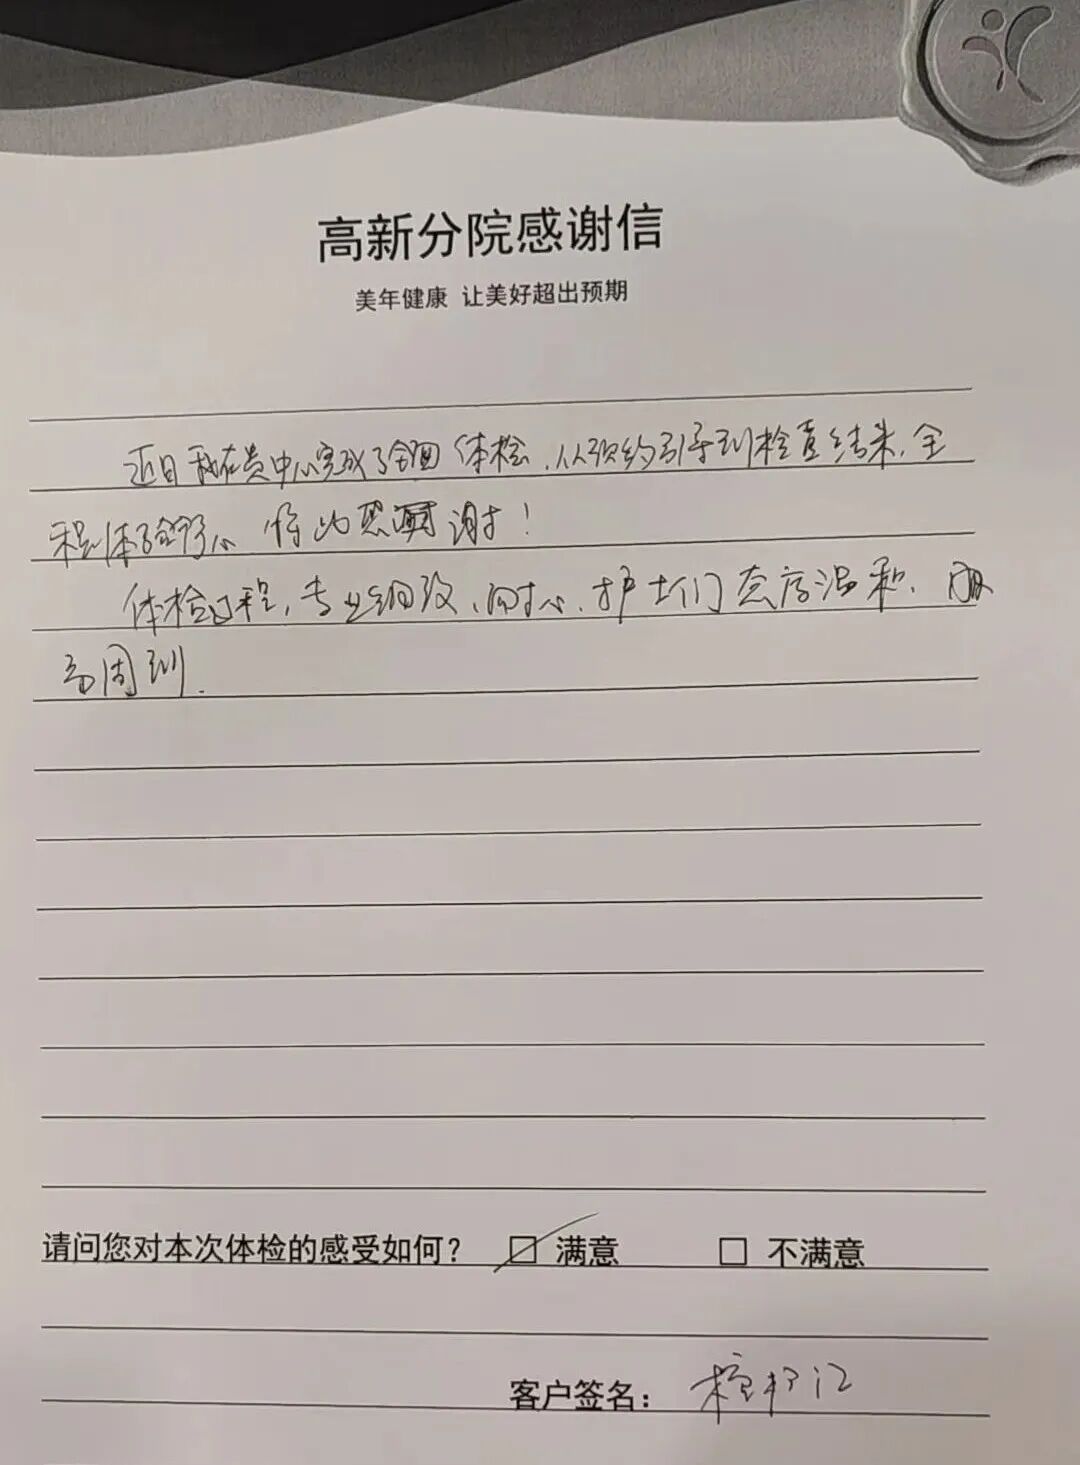 高新分院感谢信
美年健康 让美好超出预期
近日我在贵中心完成了全面体检，从预约引导到检查结果，全
程体验舒心 特此感谢！
体检过程，专业细致、耐心、护士们态度温和、服
务周到.
请问您对本次体检的感受如何？ 满意 不满意
客户签名：